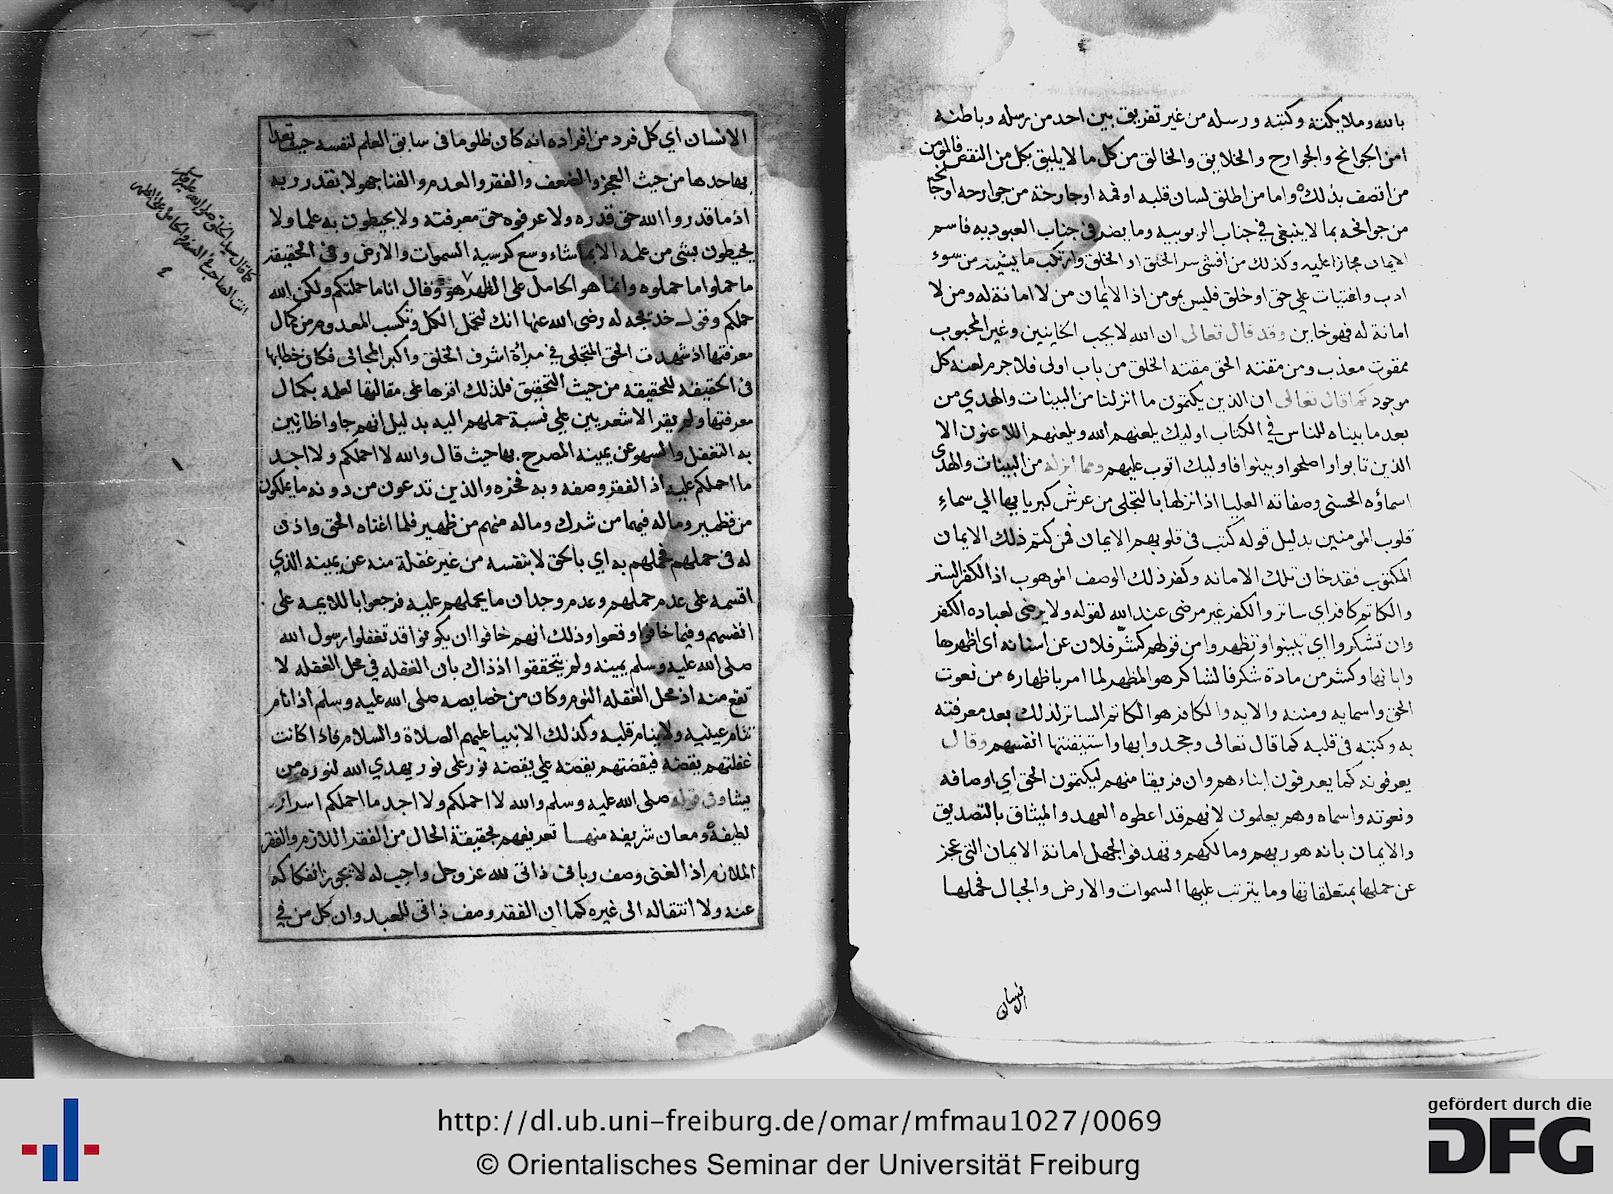 بالله وملايكته وكتبه ورسله من غير تفريق بين احد من رسله وباطنه
امن الجوانح والجوارح والخلايق والخالق من كل ما لا يليق بكل من النقص فالمؤمن
من اتصف بذلك واما من اطلق لسان قلبه او فمه او جارحة من جوارحه او
من جوانحه بما لا ينبغي في جناب الربوبيه وما يضر في جناب العبوديه فاسم
الايمان مجازا عليه وكذلك من افشى سر الخلق او الخلق وارتكب ما يشينه من سوء
ادب وافتيات على حق او خلق فليس بمومن اذ الايمان من لا امانة له ومن لا
امانة له فهو خاين وقد قال تعالى ان الله لا يحب الخاينين وغير المحبوب
ممقوت معذب ومن مقته الحق مقته الخلق من باب اولى فلا جرم لعنه كل
موجود كما قال تعالى ان الذين يكتمون ما انزلنا من البينات والهدي من
بعد ما بيناه للناس في الكتاب اوليك يلعنهم الله ويلعنهم اللاعنون الا
الذين تابوا واصلحوا وبينوا فاوليك اتوب عليهم ومما انزله من البينات والهدى
اسماؤه الحسنى وصفاته العليا اذ انزلها بالتجلي من عرش كبريايها الي سماء
قلوب المومنين بدليل قوله كتب في قلوبهم الايمان فمن كتم ذلك الايمان
المكتوب فقد خان تلك الامانه وكفر ذلك الوصف الموهوب اذ الكفر الستر
والكاتم كافر اي ساتر والكفر غير مرضي عند الله لقوله ولا يرضى لعباده الكفر
وان تشكروا اي تبينوا وتظهروا من قولهم كشر فلان عن اسنانه اي اظهرها
وابانها وكشر من مادة شكر فالشاكر هو المظهر لما امر باظهاره من نعوت
الحق واسمايه ومننه والايه والكافر هو الكاتم الساتر لذلك بعد معرفته
به وكتبه في قلبه كما قال تعالى وجحدوا بها واستيقنتها انفسهم وقال
يعرفونه كما يعرفون ابناءهم وان فريقا منهم ليكتمون الحق اي اوصافه
ونعوته واسماه وهم يعلمون لانهم قد اعطوه العهد والميثاق بالتصديق
والايمان بانه هو ربهم ومالكهم الجهل امانة الايمان التي عجز
عن حملها بمتعلقاتها وما يترتب عليها السموات والارض والجبال فحملها
الانسان
الانسان اي كل فرد من افراده انه كان ظلوما في سابق العلم لنفسه حيث
بها حدها من حيث العجز والضعف والفقر والعدم والفنا جهولا بقدر ربه
اذ ما قدروا الله حق قدره ولا عرفوه حق معرفته ولا يحيطون به علما ولا
يحيطون بشى من علمه الا بما شاء وسع كرسيه السموات والارض وفي الحقيقة
ما حملوا ما حملوه وانما هو الحامل على الظهر وقال انا ما حملتكم ولكن الله
حملكم وقول خديجه له رضى الله عنها انك لتحمل الكل وتكسب المعدوم من كمال
معرفتها اذ شهدت الحق المتجلي في مرآة اشرف الخلق واكبر المجالي فكان خطابها
في الحقيقه للحقيقه من حيث التحقيق فلذلك اقرها على مقالتها لعلمه بكمال
معرفتها ولم يقر الاشعريين على نسبة حملهم اليه بدليل انهم جاوا ظانين
به التغفل والسهو عن يمينه المصرح بها حيث قال والله لا احملكم ولا اجد
ما احملكم عليه اذ الفقر وصفه وبه فخره والذين تدعون من دونه ما يملكون
من قطمير وما له فيهما من شرك وماله منهم من ظهير فلما اغناه الحق واذن
له في حملهم فحملهم به اي بالحق لا بنفسه من غير غفلة منه عن يمينه الذي
اقسمه على عدم حملهم وعدم وجدان ما يحملهم عليه فرجعوا باللايمه على
انفسهم وفيما خافوا وقعوا وذلك انهم خافوا ان يكونوا قد تغفلوا رسول الله
صلى الله عليه وسلم يمينه ولم يتحققوا اذ ذاك بان الغفله في محل الغفله لا
تقع منه اذ محل الغفله النوم وكان من خصايصه صلى الله عليه وسلم اذا نام
تنام عينيه ولا ينام قلبه وكذلك الانبيا عليهم الصلاة والسلام فاذا كانت
غفلتهم يقضة فيقضتهم يقضة على يقضة نور على نور يهدي الله لنوره من
يشا وفي قوله صلى الله عليه وسلم والله لا احملكم ولا اجد ما احملكم اسرار
لطيفة ومعان شريفه منها تعريفهم بحقيقة الحال من الفقد اللازم والفقر
الملازم اذ الغنى وصف رباني ذاتي لله عز وجل واجب له لا يجوز انفكاكه
عنه ولا انتقاله الى غيره كما ان الفقر وصف ذاتي للعبد وان كل من في
كما قال سيد الخلق صلى الله عليه وسلم
انت الصاحب في السفر والحامل على الظهر
http://dl.ub.uni-freiburg.de/omar/mfmau1027/0069
© Orientalisches Seminar der Universität Freiburg
gefördert durch die
DFG